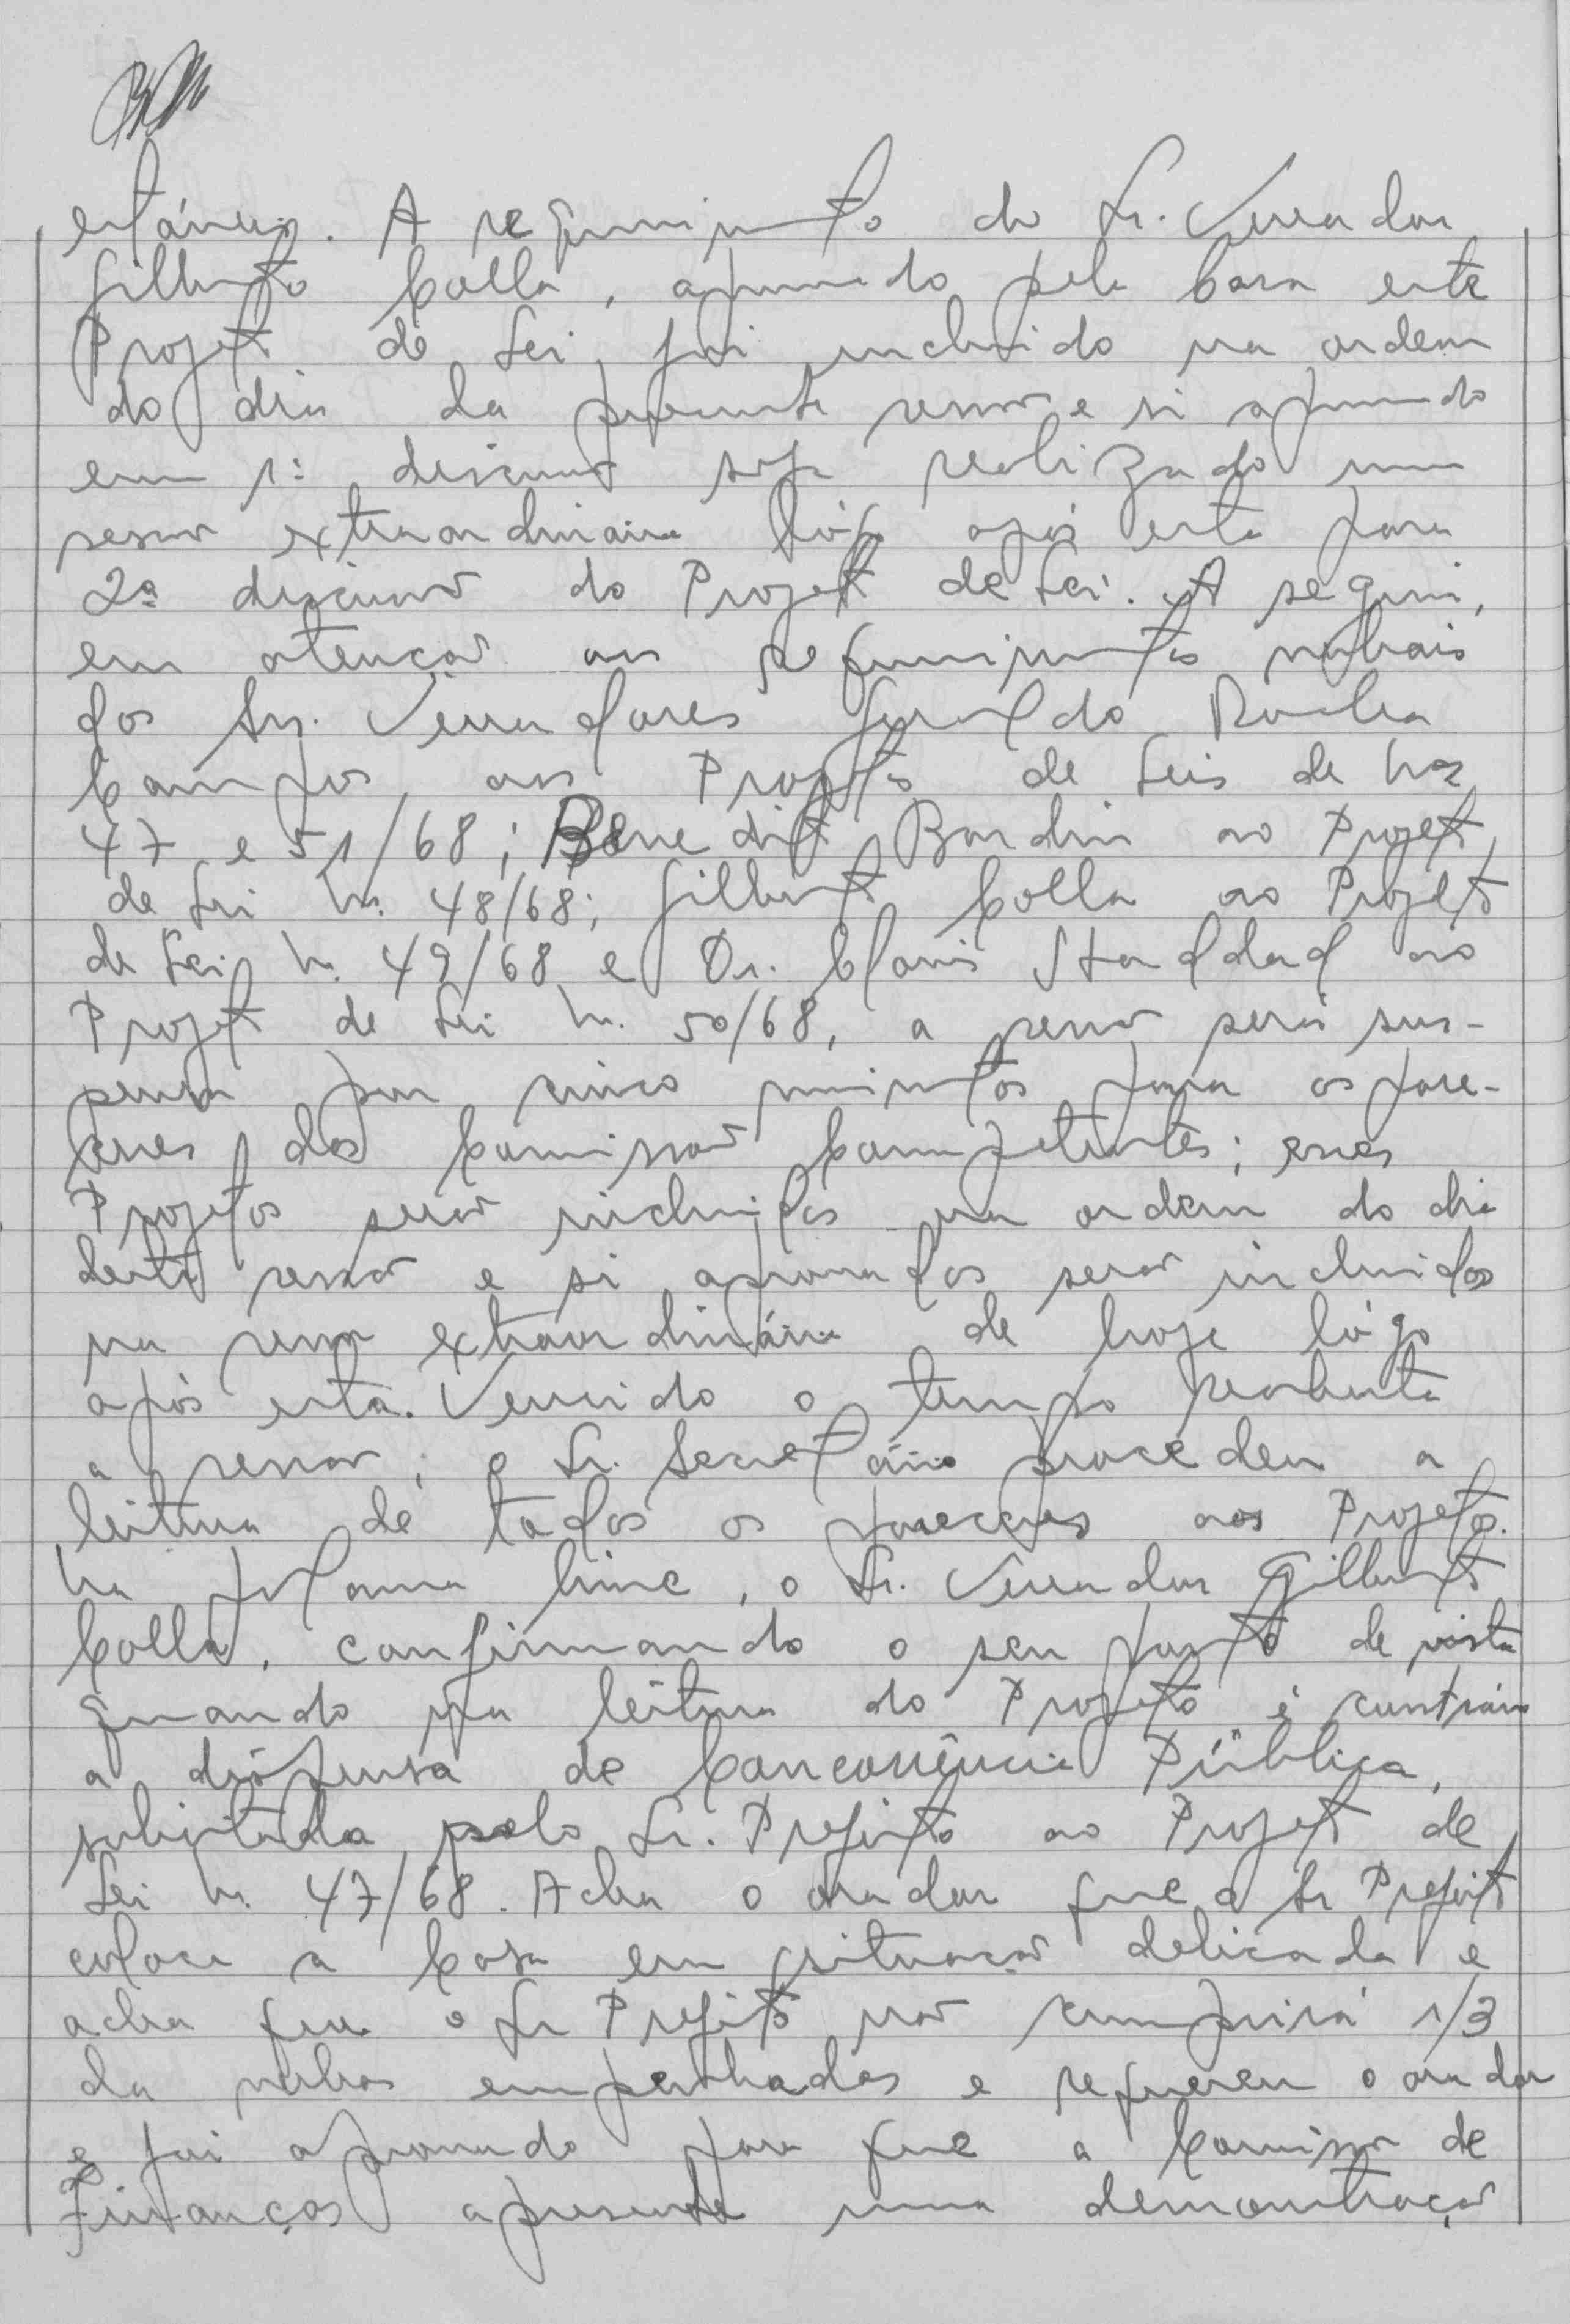 A requerimento do Sr. Vereador
Gilberto Colla, aprovado pela Casa este
Projeto de Lei, foi incluido na ordem
do dia da presente sessão e si aprovado
em 1ª discussão seja realizado uma
sessão extraordinaira lógo após esta para
2ª discussão do Projeto de Lei. A seguir,
em atenção aos requerimentos verbais
dos Srs. Vereadores Geraldo Rocha
Campos aos Projetos de Leis de nos
47 e 51/68; Benedito Bordin ao Projeto
de Lei n. 48/68; Gilberto Colla ao Projeto
de Lei n. 49/68 e Dr. Cloris ao
Projeto de Lei n. 50/68, a sessão será sus-
pensa por cinco minutos para os pare-
ceres das Comissões Competentes; esses
Projetos serão incluidos na ordem do dia
desta sessão e si aprovados serão incluidos
na sessão extraordinária de hoje lógo
após esta. Vencido o tempo reaberta
a sessão; o Sr. Secretário procedeu a
leitura de todos os pareceres aos Projetos.
Na palavra livre, o Sr. Vereador Gilberto
Colla, confirmando o seu ponto de vista
quando na leitura do Projeto é contrário
a dispensa de Concorrência Pública,
solicitada pelo Sr. Prefeito ao Projeto de
Lei n. 47/68. Acha o orador que o Sr Prefeito
coloca a Casa em situação delicada e
acha que o Sr Prefeito não cumprirá 1/3
da verbas empenhadas e requereu o orador
e foi aprovado para que a Comissão de
Finanças apresente uma demonstração